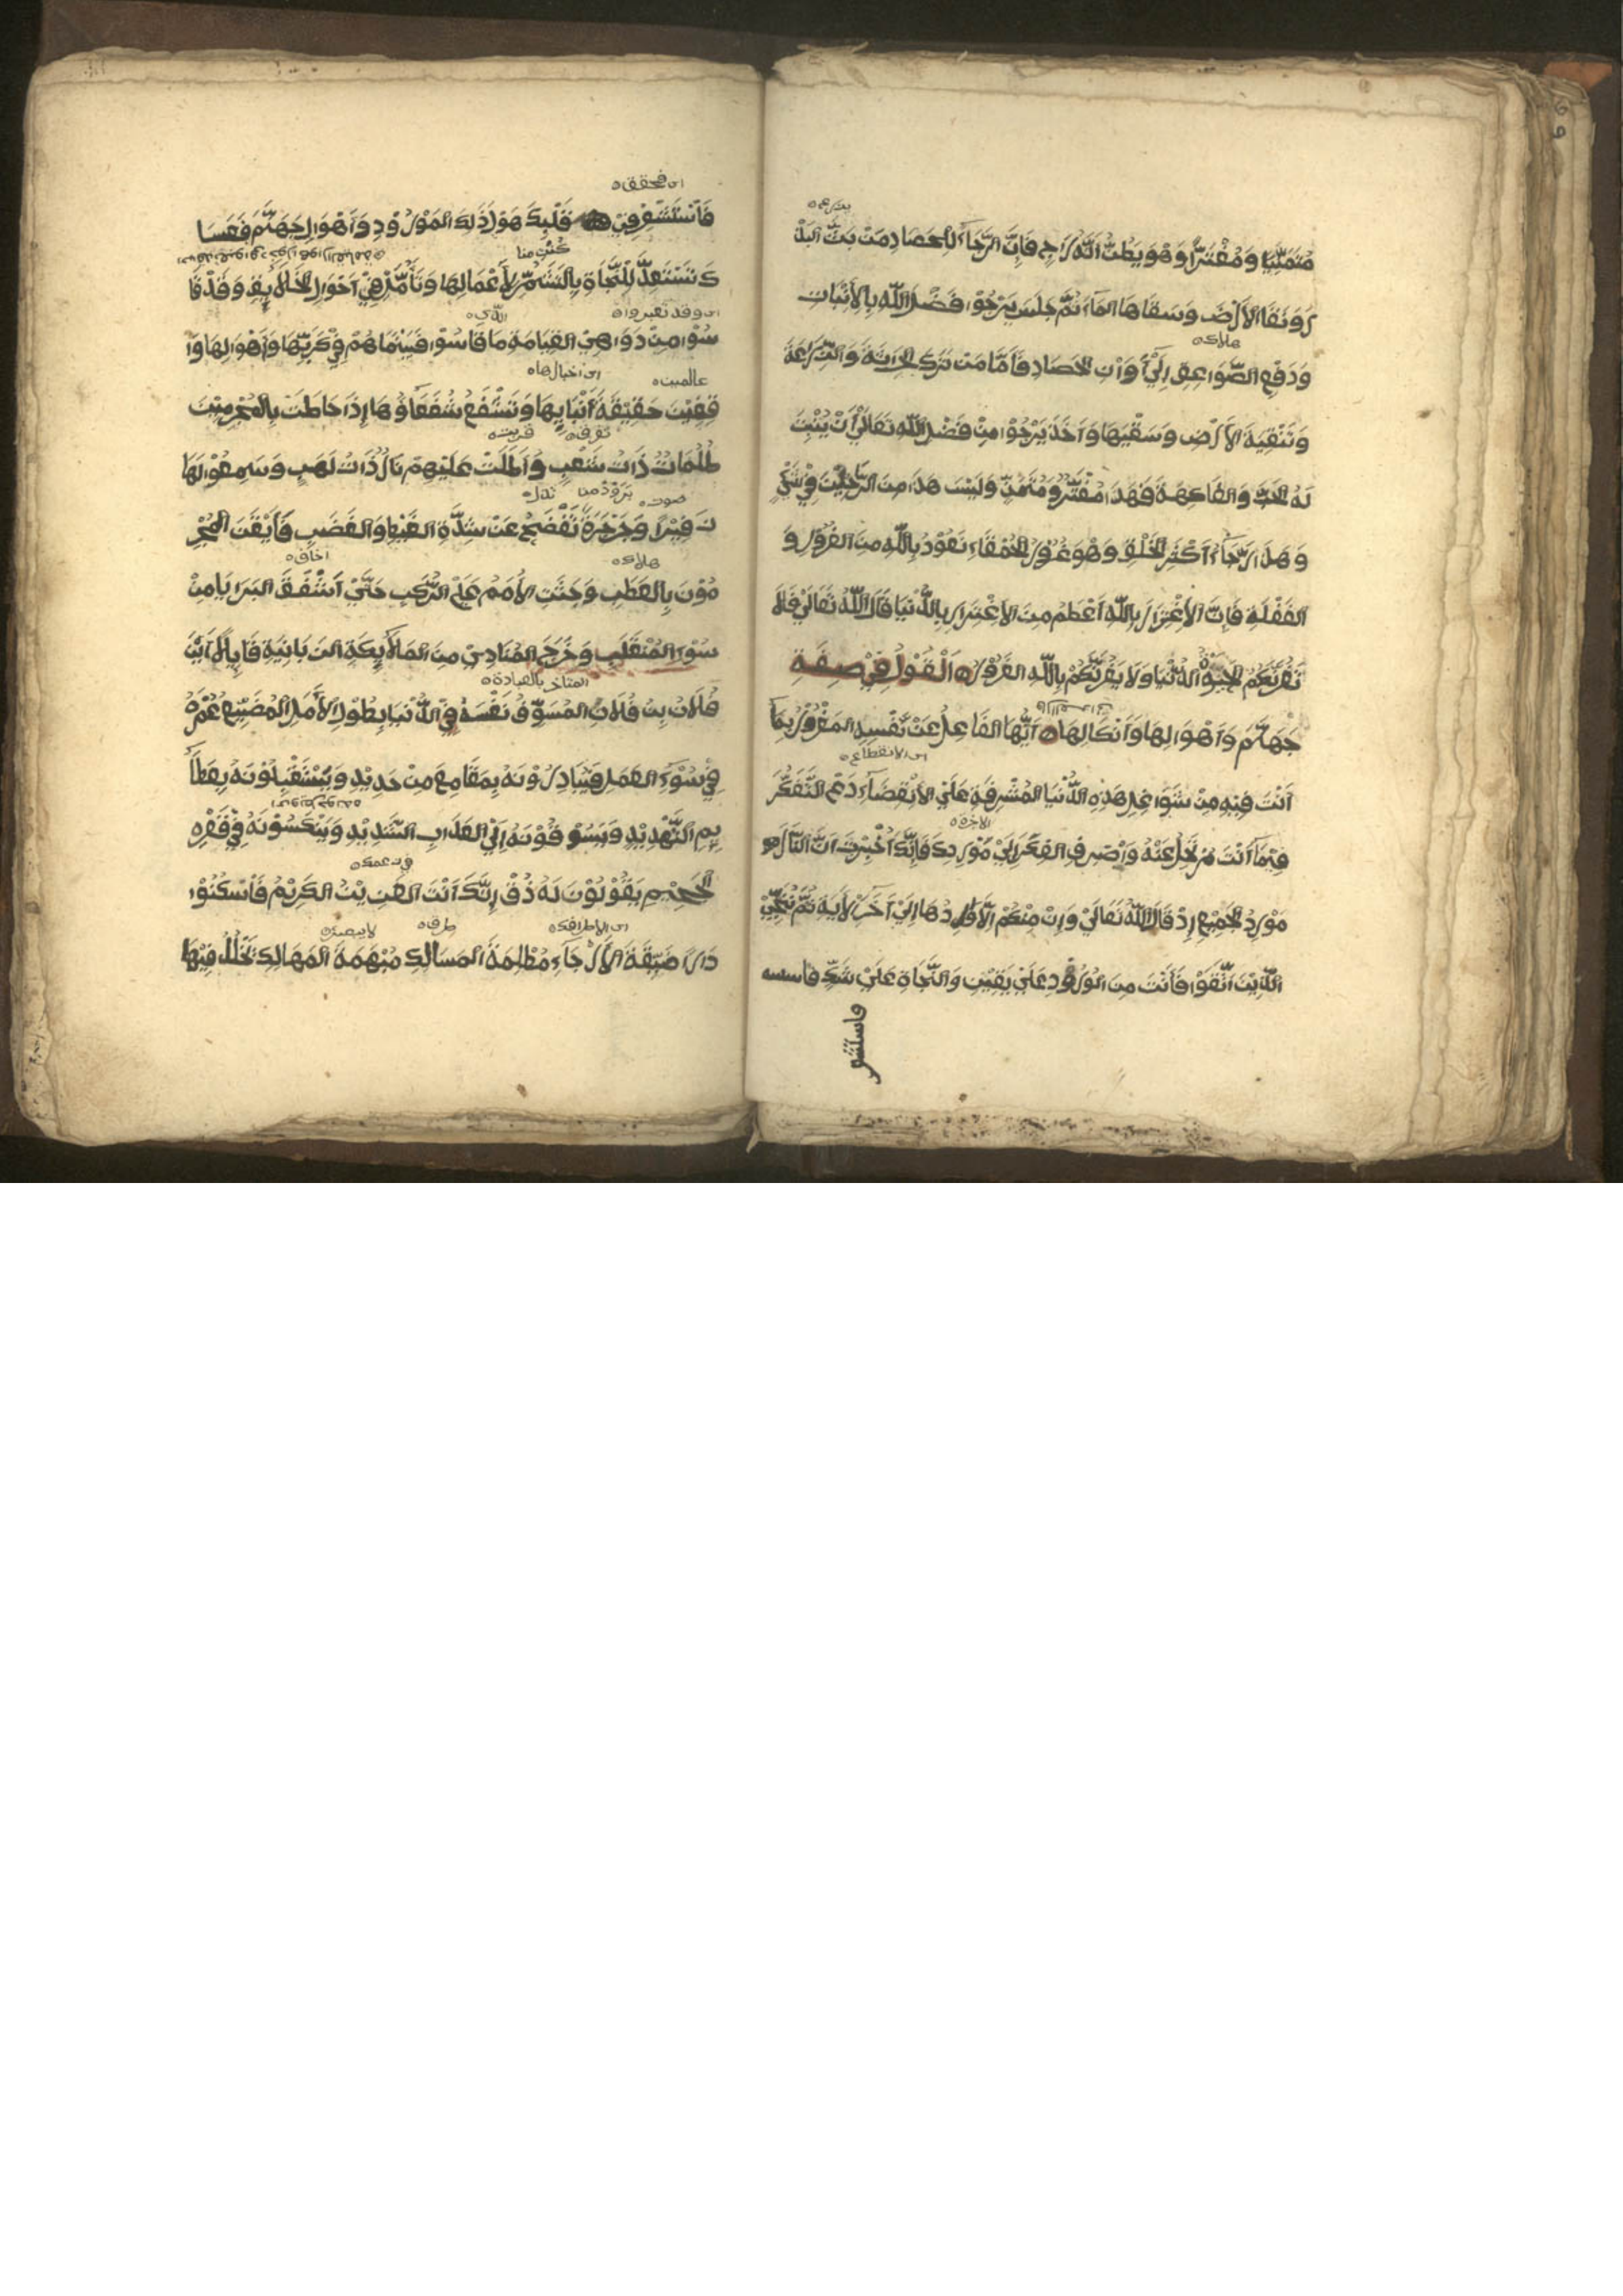 مُتَمَنِّيًا وَمُغْتَرًّا وَهُوَ يَظُنُّ اَنَّهُ رَاجٍ فَاِنَّ الرَّجَاءَ لِلْحَصَادِ مَنْ بَثَّ البَذْ
رَ وَنَقَا الاَرْضَ وَسَقَاهَا المَاءَ ثُمَّ جَلَسَ يَرْجُوْا فَضْلَ اللّٰهِ بِالاِنْبَاتِ
هلاك
وَدَفْعِ الصَّوَاعِقِ اِلَى أَوَانِ الحَصَادِ فَاَمَّا مَنْ تَرَكَ الحِرَاثَةَ وَالزِّرَاعَةَ
وَتَنْقِيَةَ الاَرْضِ وَسَقْيَهَا وَاَخَذَ يَرْجُوْا مِنْ فَضْلِ اللّٰهِ تَعَالَىْ أَنْ يُنْبِتَ
لَهُ الحَبَّ وَالفَاكِهَةَ فَهَذَا مُغْتَرٌّ وَمُتَمَنٍّ وَلَيْسَ هَذَا مِنَ الرَّاجِيْنَ فِيْ شَيْءٍ
وَهَذَا رَجَاءُ اَكْثَرِ الخَلْقِ وَهُوَ غُرُوْرُ الحُمْقَاءِ نَعُوْذُ بِاللّٰهِ مِنَ الغُرُوْرِ وَ
الغَفْلَةِ فَاِنَّ الاِغْتِرَارَ بِاللّٰهِ اَعْظَمُ مِنَ الاِغْتِرَارِ بِالدُّنْيَا قَالَ اللّٰهُ تَعَالَىْ فَلَا
تَغُرَّنَّكُمُ الحَيٰوةُ الدُّنْيَا وَلَا يَغُرَّنَّكُمْ بِاللّٰهِ الغَرُوْرُ اَلْقَوْلُ فِيْ صِفَةِ
جَهَنَّمَ وَاَهْوَالِهَا وَاَنْكَالِهَا اَيُّهَا الغَافِلُ عَنْ نَفْسِهِ المَغْرُوْرُ بِمَا
اى الانقطاع
اَنْتَ فِيْهِ مِنْ شَوَاغِلِ هَذِهِ الدُّنْيَا المُشْرِفَةِ عَلَى الاِنْقِضَاءِ دَعِ التَّفَكُّرَ
الاخرة
فِيْمَا اَنْتَ مُرْتَحِلٌ عَنْهُ وَاصْرِفِ الفِكْرَ اِلَىْ مَوْرِدِكَ فَاِنَّكَ اُخْبِرْتَ اَنَّ النَّارَ
مَوْرِدُ الجَمِيْعِ اِذْ قَالَ اللّٰهُ تَعَالَىْ وَاِنْ مِنْكُمْ اِلَّا وَارِدُهَا اِلَىْ آخَرِ الاَيَةِ ثُمَّ نُنَجِّيْ
الَّذِيْنَ اتَّقَوْا فَاَنْتَ مِنَ الوُرُوْدِ عَلَىْ يَقِيْنٍ وَالنَّجَاةِ عَلَىْ شَكٍّ
فاستشعر
اى فحقق
فِيْ قَلْبِكَ هَوْلَ ذَلِكَ المَوْرُوْدِ وَاَهْوَالِ جَهَنَّمَ فَعَسَا
كَ تَسْتَعِدُّ لِلنَّجَاةِ بِالتَّشَمُّرِ لِاَعْمَالِهَا وَتَأَمَّلْ فِيْ اَحْوَالِ الخَلَائِقِ وَقَدْ قَا
سُوْا مِنْ دَوَاهِىْ القِيَامَةِ مَا قَاسُوْا فَبَيْنَمَا هُمْ فِيْ كَرْبِهَا وَاَهْوَالِهَا وَا
اى اخبارها
قِفِيْنَ حَقِيْقَةَ اَنْبَائِهَا وَتَشَفُّعَ شُفَعَاؤُهَا اِذَا حَاطَتْ بِالمُجْرِمِيْنَ
ظُلُمَاتٌ ذَاتُ شَعْبٍ وَاَظَلَّتْ عَلَيْهِمْ نَارٌ ذَاتُ لَهَبٍ وَسَمِعُوْا لَهَا
صوت تدل
زَفِيْرًا وَجَرْجَرَةً تُفْصِحُ عَنْ شِدَّةِ الغَيْظِ وَالغَضَبِ فَاَيْقَنَ المُجْرِ
هلاك اخاف
مُوْنَ بِالعَطَبِ وَجَثَتِ الاُمَمُ عَلَى الرُّكَبِ حَتَّىْ اَشْفَقَ البَرَايَا مِنْ
سُوْءِ المُنْقَلَبِ وَخَرَجَ المُنَادِىْ مِنَ المَلَائِكَةِ الزَّبَانِيَةِ قَائِلًا اَيْنَ
فُلَانُ بْنُ فُلَانٍ المُسَوِّفُ نَفْسَهُ فِيْ الدُّنْيَا بِطُوْلِ الاَمَلِ المُضَيِّعُ عُمْرَهُ
فِيْ سُوْءِ العَمَلِ فَيُبَادِرُوْنَهُ بِمَقَامِعَ مِنْ حَدِيْدٍ وَيَسْتَقْبِلُوْنَهُ بِعَظَا
ئِمِ التَّهْدِيْدِ وَيَسُوْقُوْنَهُ اِلَى العَذَابِ الشَّدِيْدِ وَيَنْكُسُوْنَهُ فِيْ قَعْرِ
الجَحِيْمِ يَقُوْلُوْنَ لَهُ ذُقْ اِنَّكَ اَنْتَ العَزِيْزُ الكَرِيْمُ فَاَسْكَنُوْا
دَارًا ضَيِّقَةَ الاَرْجَاءِ مُظْلِمَةَ المَسَالِكِ مُبْهَمَةَ المَهَالِكِ يُخَلَّدُ فِيْهَا